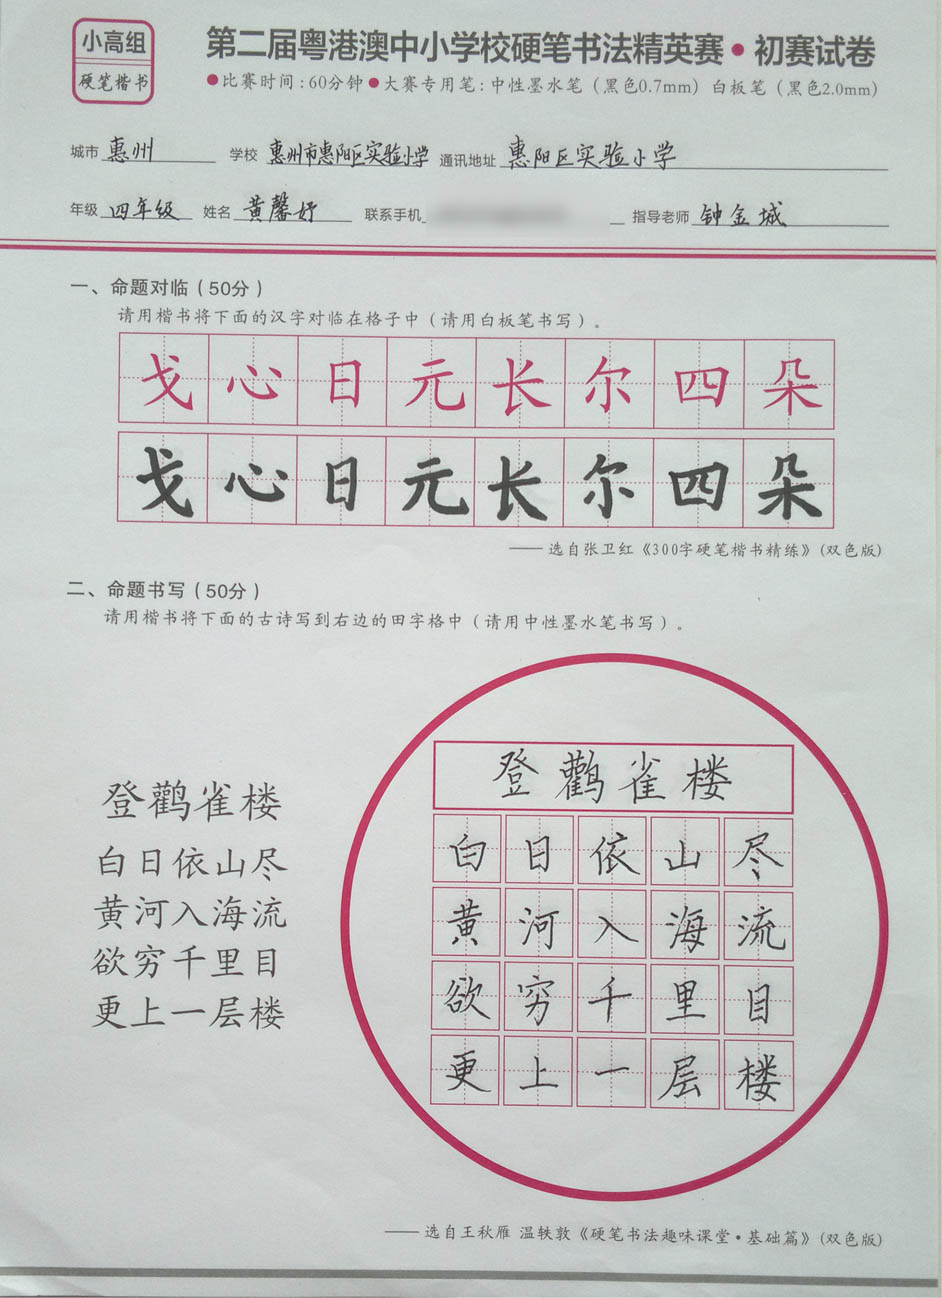 小高组
硬笔楷书
第二届粤港澳中小学校硬笔书法精英赛•初赛试卷
●比赛时间:60分钟●大赛专用笔:中性墨水笔(黑色0.7mm)白板笔(黑色2.0mm)
城市 惠州 学校 惠州市惠阳区实验小学 通讯地址 惠阳区实验小学
年级 四年级 姓名 黄馨妤 联系手机 指导老师 钟金城
一、命题对临(50分)
请用楷书将下面的汉字对临在格子中(请用白板笔书写)。
戈心日元长尔四朵
戈心日元长尔四朵
—— 选自张卫红《300字硬笔楷书精练》(双色版)
二、命题书写(50分)
请用楷书将下面的古诗写到右边的田字格中(请用中性墨水笔书写)。
登鹳雀楼
白日依山尽
黄河入海流
欲穷千里目
更上一层楼
登鹳雀楼
白日依山尽
黄河入海流
欲穷千里目
更上一层楼
—— 选自王秋雁 温轶敦《硬笔书法趣味课堂·基础篇》(双色版)